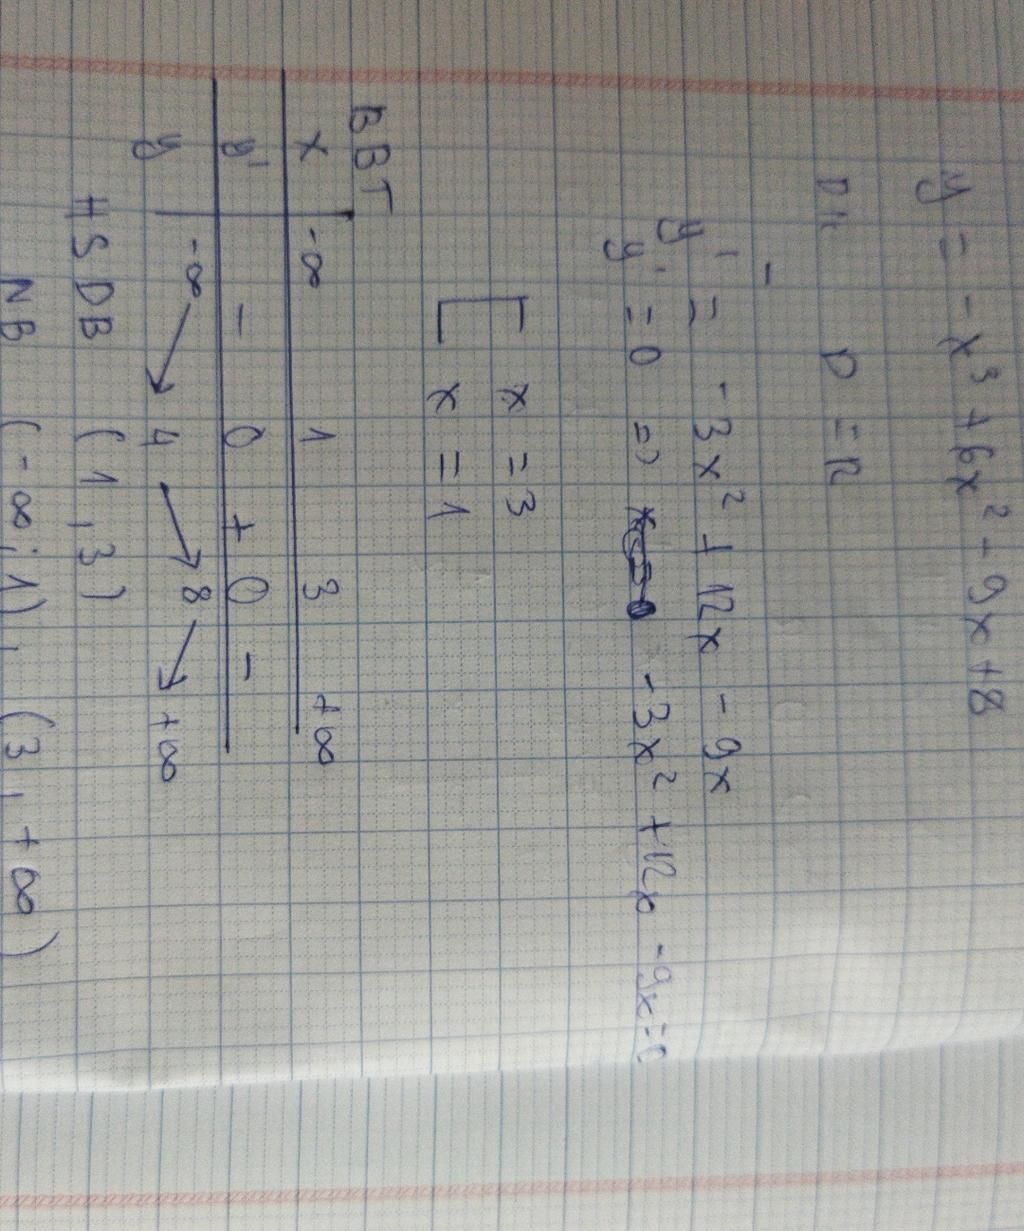 y = -x³ + 6x² - 9x + 8
D: D = R
y' = -3x² + 12x - 9x
y' = 0 => -3x² + 12x - 9x = 0
[ x = 3
[ x = 1
BBT
x -∞ 1 3 +∞
y' - 0 + 0 -
y -∞ ↘ 4 ↗ 8 ↘ +∞
HSDB (1, 3)
NB (-∞; 1), (3, +∞)